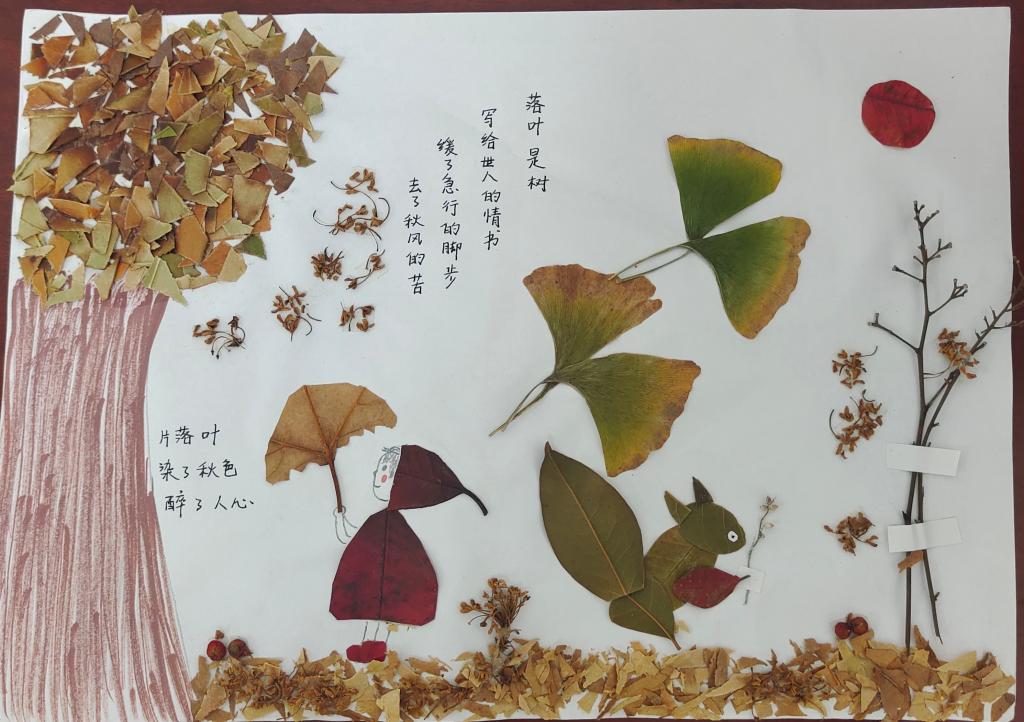 落叶是树
写给世人的情书
缓了急行的脚步
去了秋风的苦
片落叶
染了秋色
醉了人心